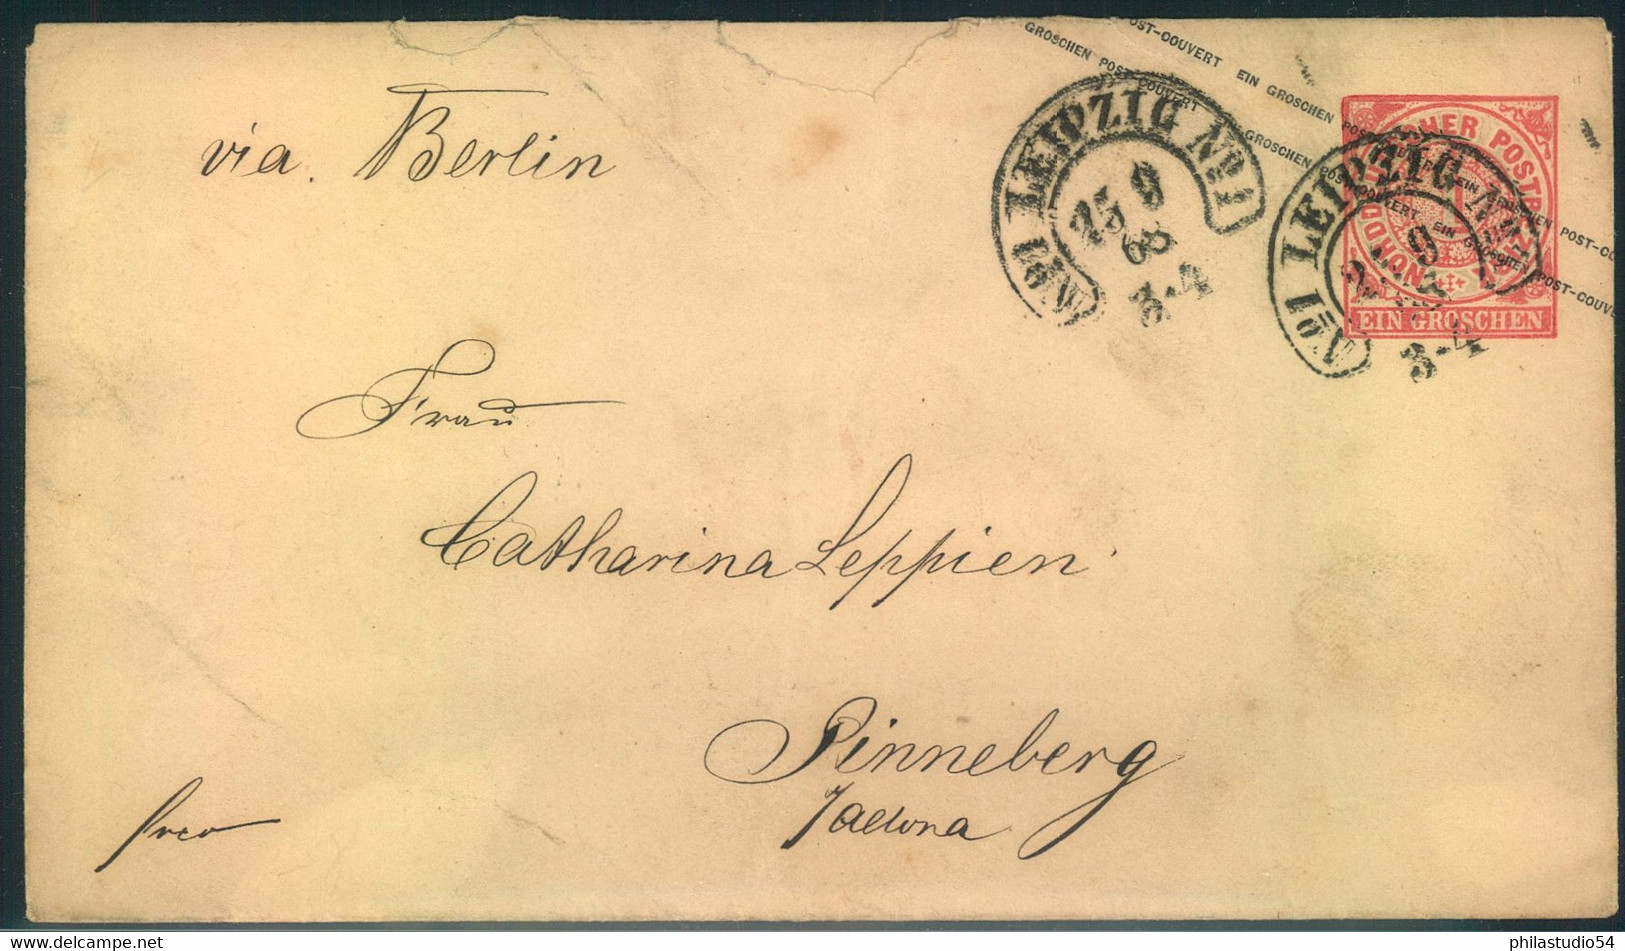 POST-COUVERT EIN GROSCHEN POST-COUVERT EIN GROSCHEN POST-COUVERT
GROSCHEN POST-COUVERT EIN GROSCHEN POST-COUVERT EIN GROSCHEN POST-COUVERT
via. Berlin
LEIPZIG No 1
25 9
68
3-4
LEIPZIG
9
3-4
NORDDEUTSCHER POSTBEZIRK
1
EIN GROSCHEN
Frau
Catharina Leppien
Pinneberg
frco
philastudio54